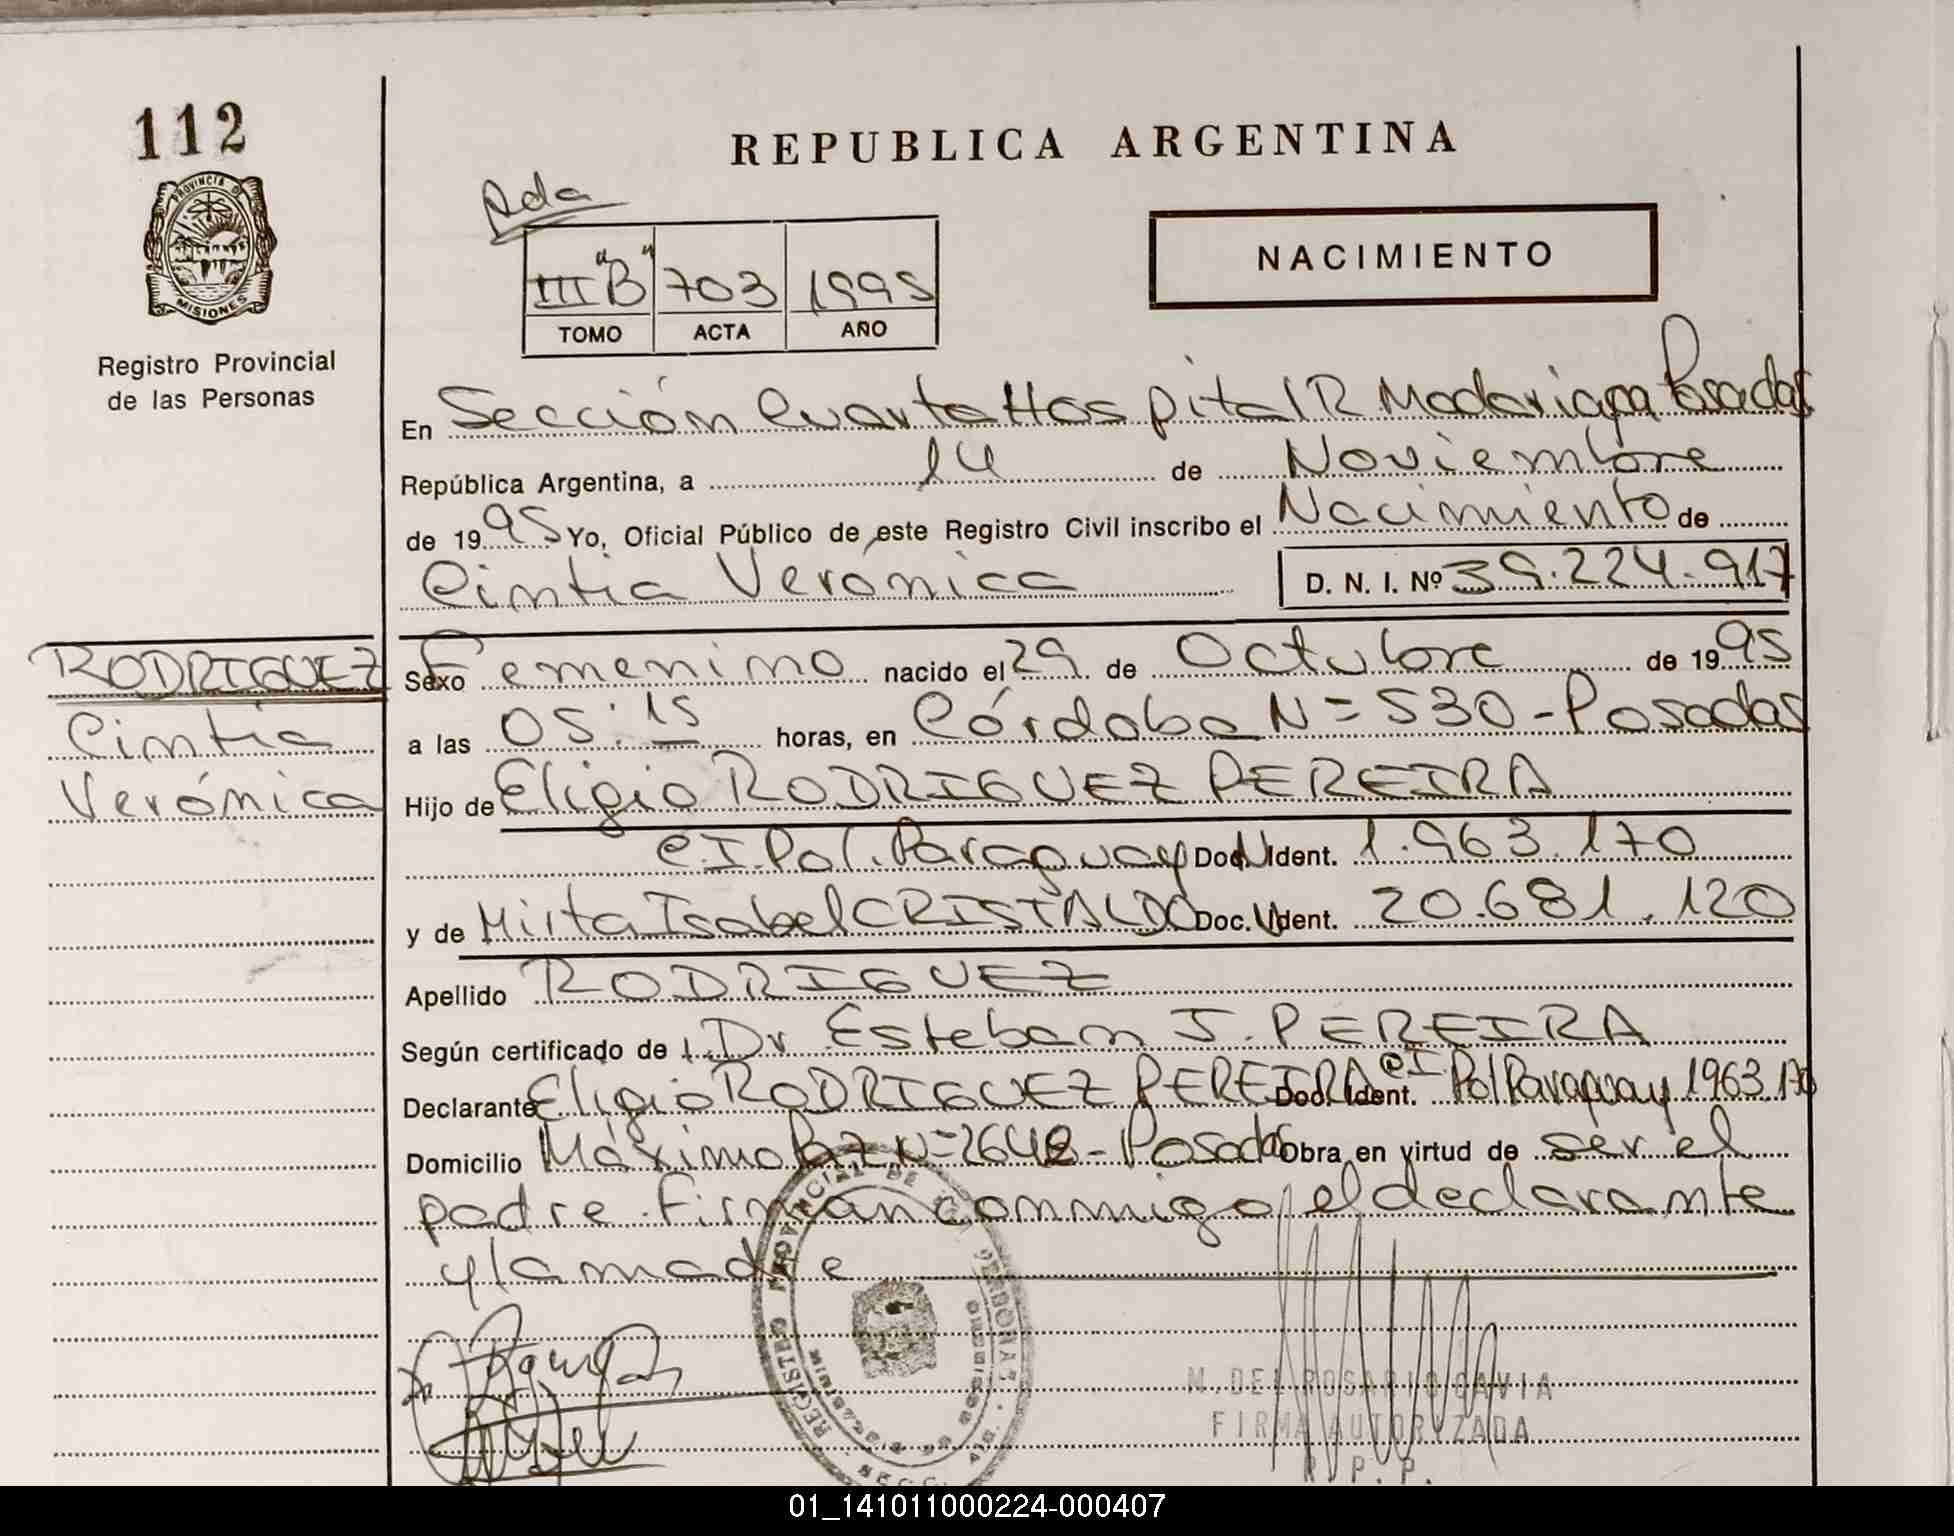 112
REPUBLICA ARGENTINA
PROVINCIA DE
MISIONES
Registro Provincial
de las Personas
III "B" 703 1995
TOMO ACTA AÑO
NACIMIENTO
En Sección Cuarta Hospital R Madariaga Posadas
República Argentina, a 14 de Noviembre
de 1995 Yo, Oficial Público de este Registro Civil inscribo el Nacimiento de
Cintia Verónica D. N. I. Nº 39.224.917
RODRIGUEZ
Cintia
Verónica
Sexo Femenino nacido el 29 de Octubre de 1995
a las 05:15 horas, en Córdoba N=530-Posadas
Hijo de Eligio RODRIGUEZ PEREIRA
C.I.Pol.Paraguay Doc. Ident. 1.963.170
y de Mirta Isabel CRISTALDO Doc. Ident. 20.681.120
Apellido RODRIGUEZ
Según certificado de Dr Esteban J. PEREIRA
Declarante Eligio RODRIGUEZ PEREIRA Doc. Ident. CI Pol Paraguay 1963.170
Domicilio Máximo Paz N=2648-Posadas Obra en virtud de ser el
padre. Firman conmigo el declarante
y la madre
REGISTRO PROVINCIAL DE LAS PERSONAS
M. DEL ROSARIO GAVIA
FIRMA AUTORIZADA
R. P. P.
01_141011000224-000407